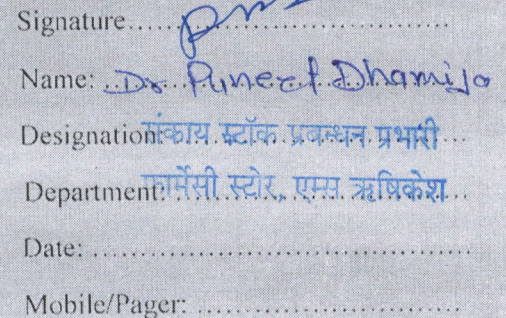 Signature..............................
Name: Dr Puneet Dhamija
Designation संकाय स्टॉक प्रबन्धन प्रभारी
Department: फार्मेसी स्टोर, एम्स ऋषिकेश
Date: ..............................
Mobile/Pager: ..............................